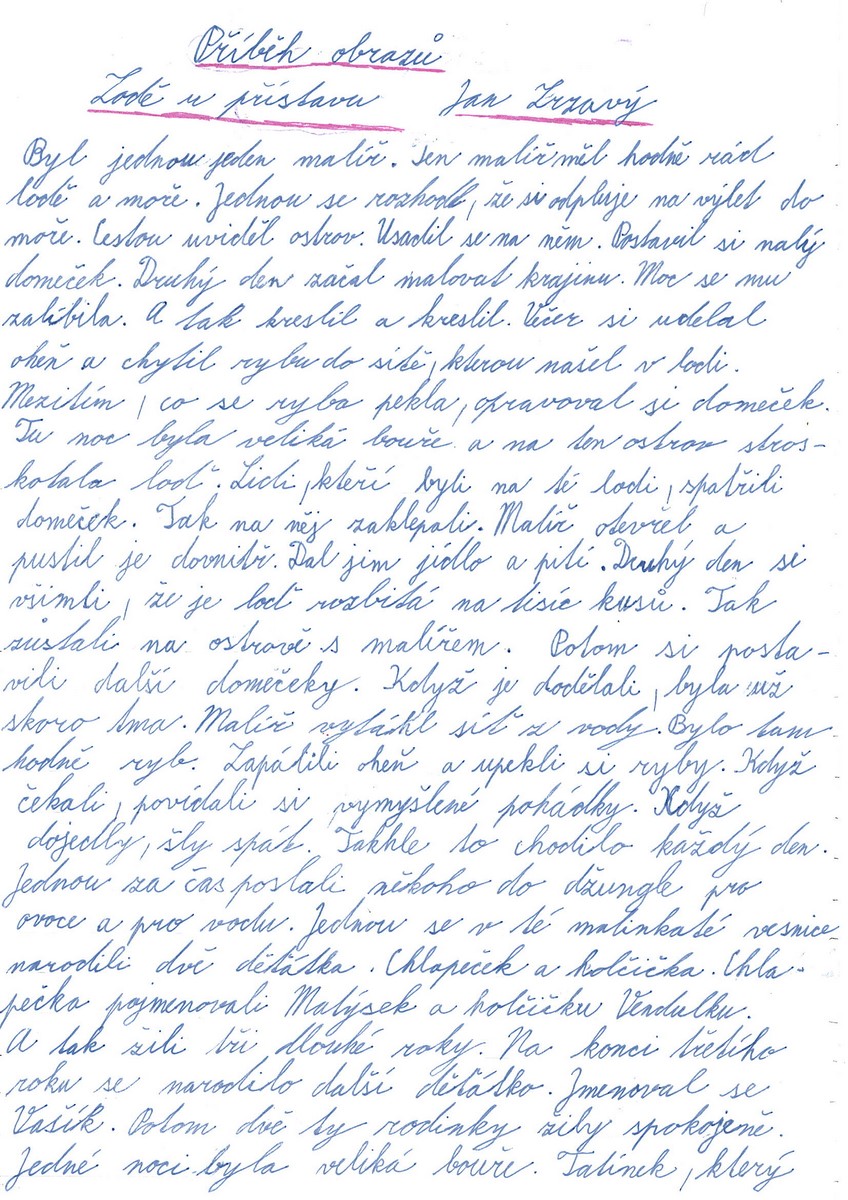 Příběh obrazů
Lodě u přístavu Jan Zrzavý
Byl jednou jeden malíř. Ten malíř měl hodně rád
lodě a moře. Jednou se rozhodl, že si odpluje na výlet do
moře. Cestou uviděl ostrov. Usadil se na něm. Postavil si malý
domeček. Druhý den začal malovat krajinu. Moc se mu
zalíbila. A tak kreslil a kreslil. Večer si udelal
oheň a chytil rybu do sítě, kterou našel v lodi.
Mezitím, co se ryba pekla, opravoval si domeček.
Tu noc byla veliká bouře a na ten ostrov stros-
kotala loď. Lidi, kteří byli na té lodi, spatřili
domeček. Tak na něj zaklepali. Malíř otevřel a
pustil je dovnitř. Dal jim jídlo a pití. Druhý den si
všimli, že je loď rozbitá na tisíc kusů. Tak
zůstali na ostrově s malířem. Potom si posta-
vili další domečeky. Když je dodělali, byla už
skoro tma. Malíř vytáhl síť z vody. Bylo tam
hodně ryb. Zapálili oheň a upekli si ryby. Když
čekali, povídali si vymyšlené pohádky. Když
dojedly, šly spát. Takhle to chodilo každý den.
Jednou za čas poslali někoho do džungle pro
ovoce a pro vodu. Jednou se v té malinkaté vesnice
narodili dvě děťátka. Chlapeček a holčička. Chla-
pečka pojmenovali Matýsek a holčičku Vendulku.
A tak žili tři dlouhé roky. Na konci třetího
roku se narodilo další děťátko. Jmenoval se
Vašík. Potom dvě ty rodinky žily spokojeně.
Jedné noci byla veliká bouře. Tatínek, který